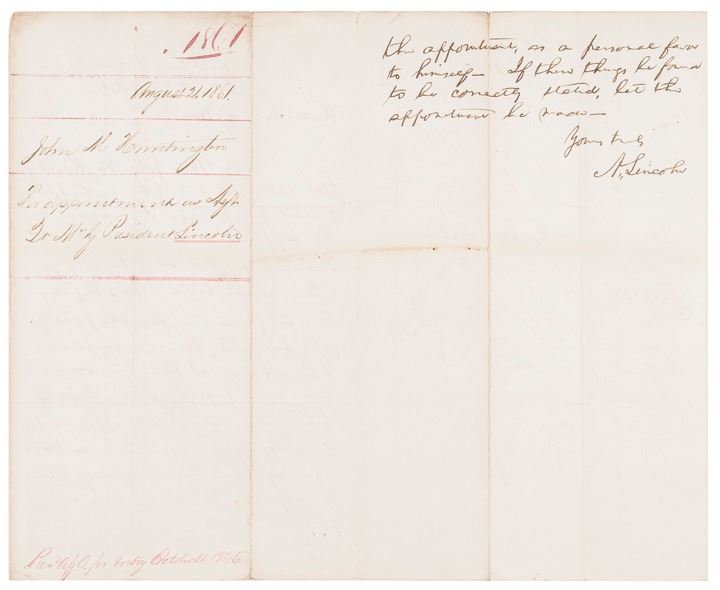 1861
August 21. 1861.
John M Huntington
For appointment as Asst
Qr Mr by President Lincoln
the appointment, as a personal favor
to himself— If these things be found
to be correctly stated, let the
appointment be made—
Yours truly
A. Lincoln
Rec'd A.G.O. for 1866